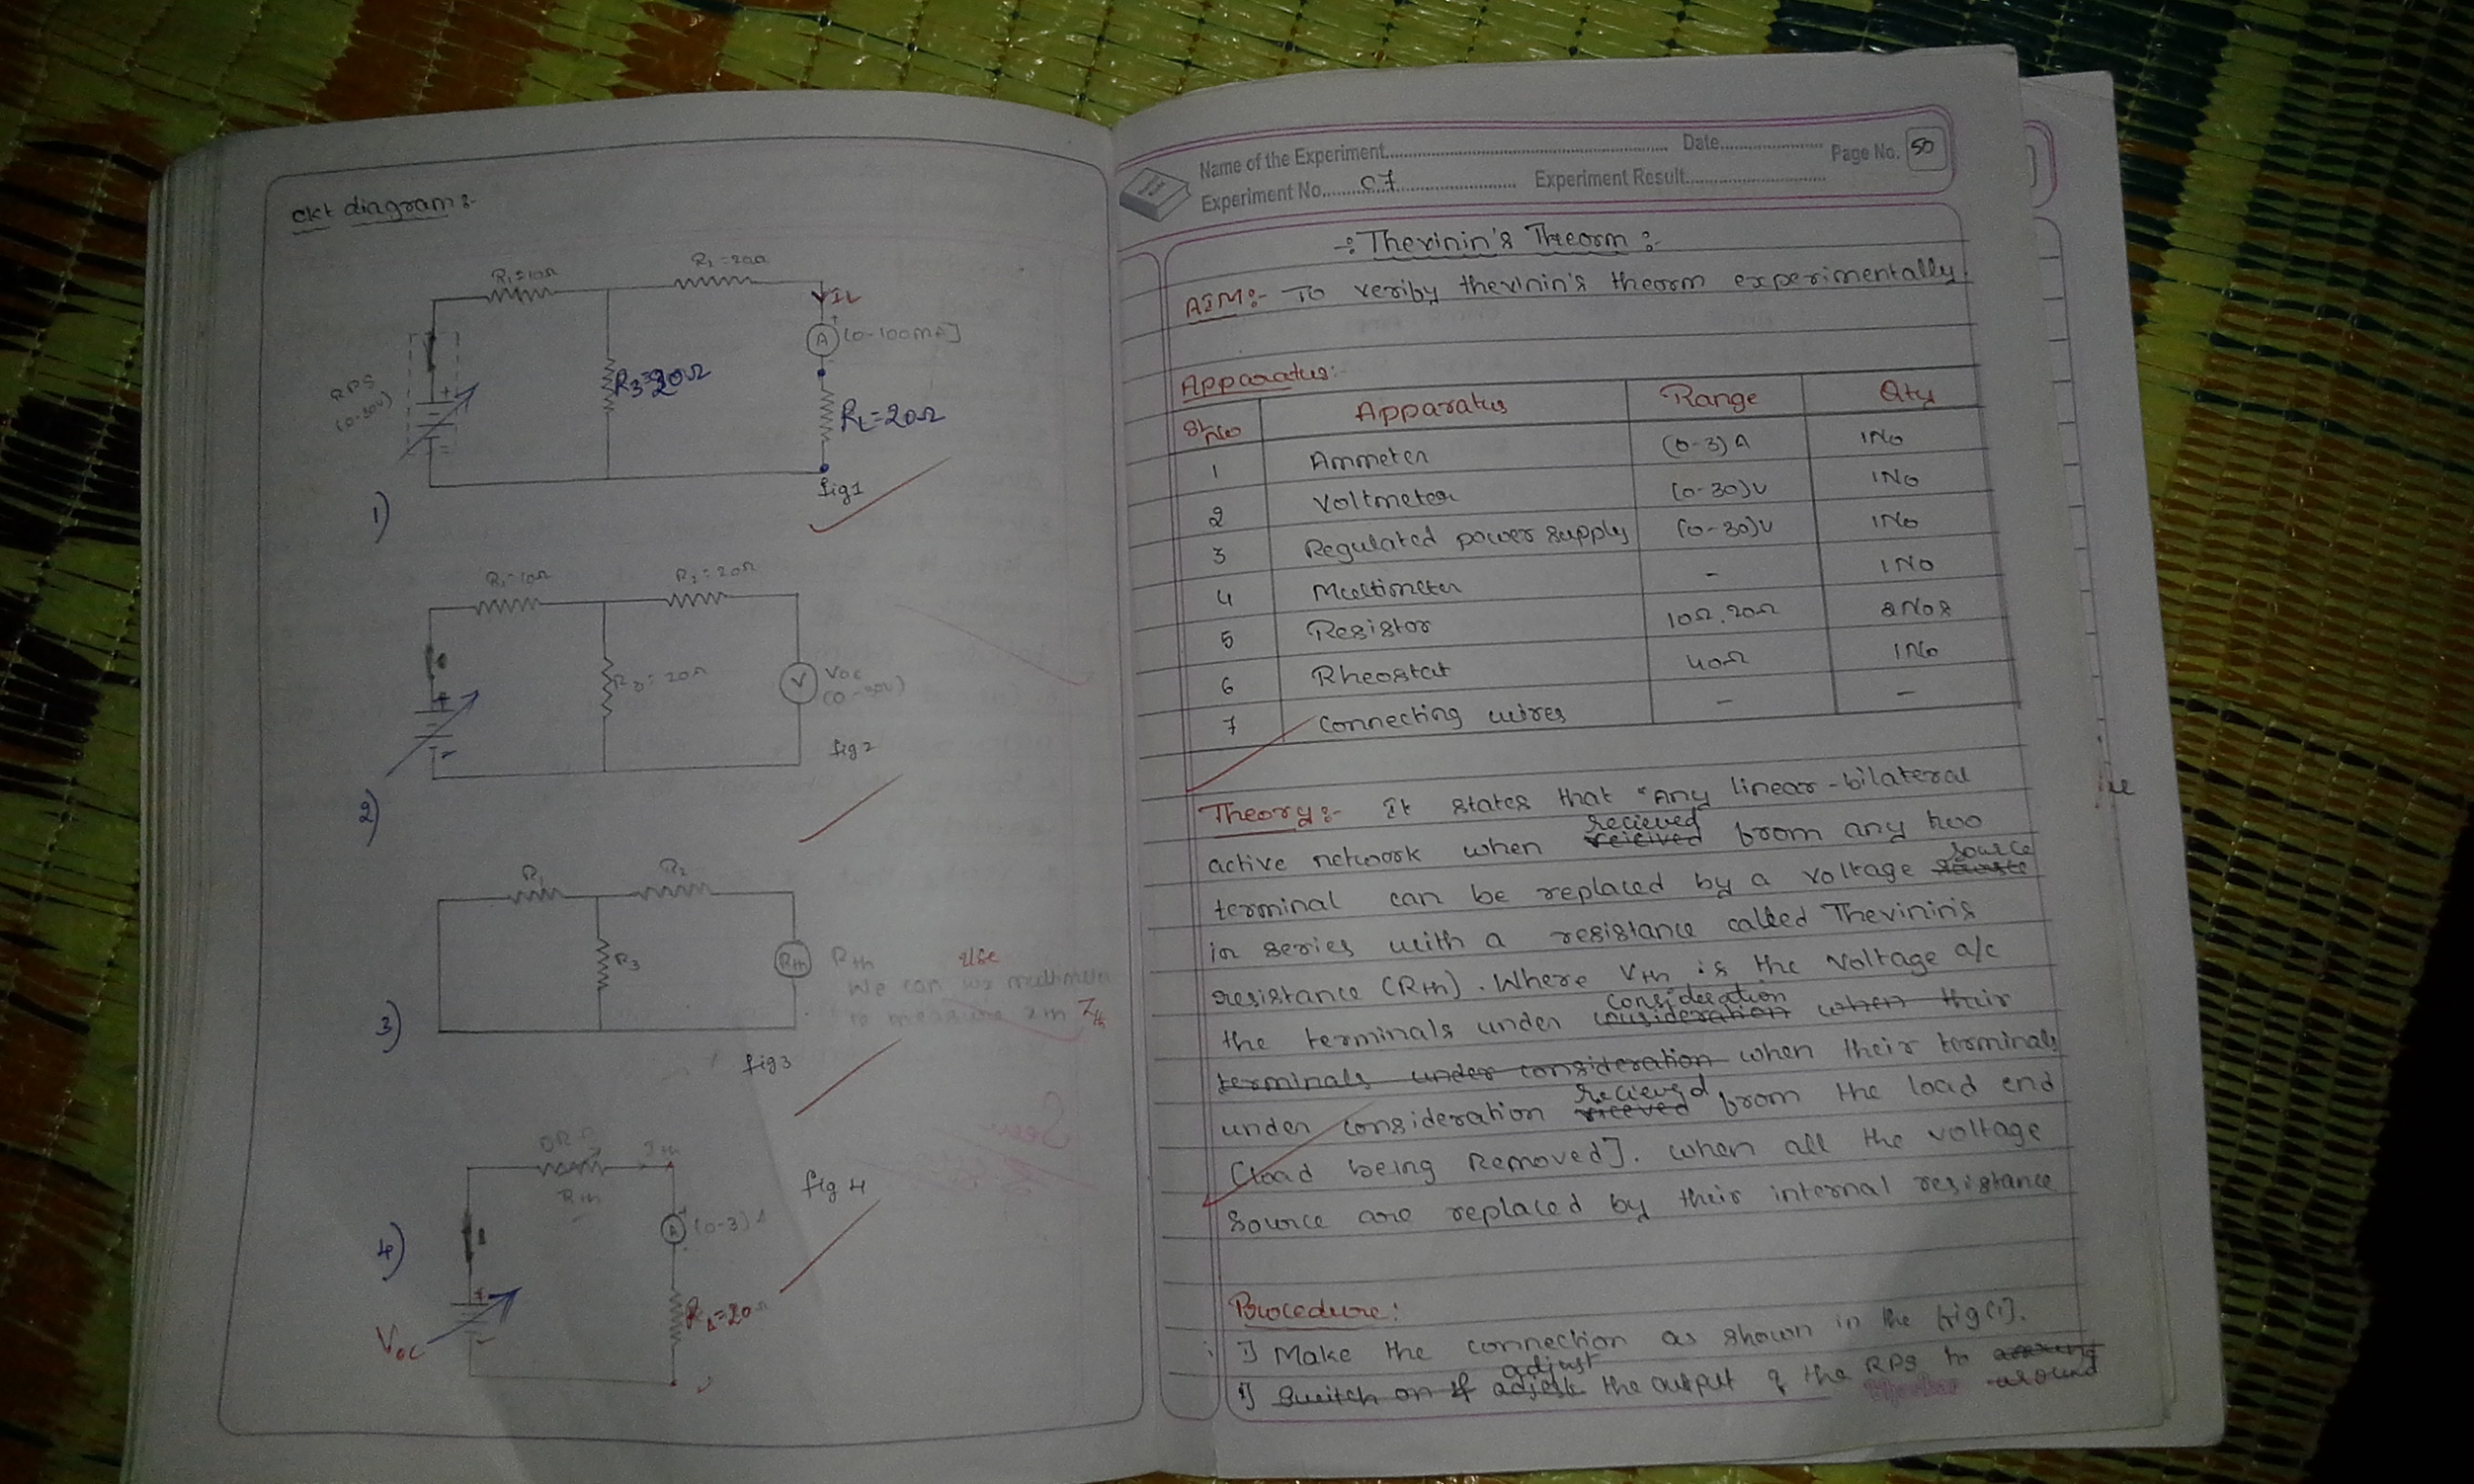 ckt diagram:-
R1=10Ω
R2=20Ω
IL
+
A
(0-100mA]
R3=20Ω
RPS
(0-30V)
+
-
RL=20Ω
fig1
1)
R1=10Ω
R2=20Ω
R3=20Ω
V
Voc
(0-30V)
+
-
fig2
2)
R1
R2
R3
Rth
Rth
use
We can
to measure
Zth
fig3
3)
Ith
Rth
fig 4
A
(0-3)A
4)
+
-
RL=20Ω
Voc
Name of the Experiment
Date
Page No. 50
Experiment No. 07
Experiment Result
-: Thevinin's Theorm :-
AIM:- To verify thevinin's theorm experimentally.
Apparatus:-
Sl No Apparatus Range Qty
1 Ammeter (0-3)A 1No
2 Voltmeter (0-30)V 1No
3 Regulated power supply (0-30)V 1No
4 Multimeter - 1No
5 Resistor 10Ω, 20Ω 2Nos
6 Rheostat 40Ω 1No
7 Connecting wires - -
Theory:- It states that "Any linear-bilateral
recieved
active network when from any two
source
terminal can be replaced by a voltage
in series with a resistance called Thevinin's
resistance (Rth). Where Vth is the voltage a/c
consideration
the terminals under consideration when their
terminals under consideration when their terminals
recieved
under consideration from the load end
[load being Removed]. when all the voltage
source are replaced by their internal resistance
Procedure:
i] Make the connection as shown in the fig(1].
adjust
Switch on the output of the RPS to around